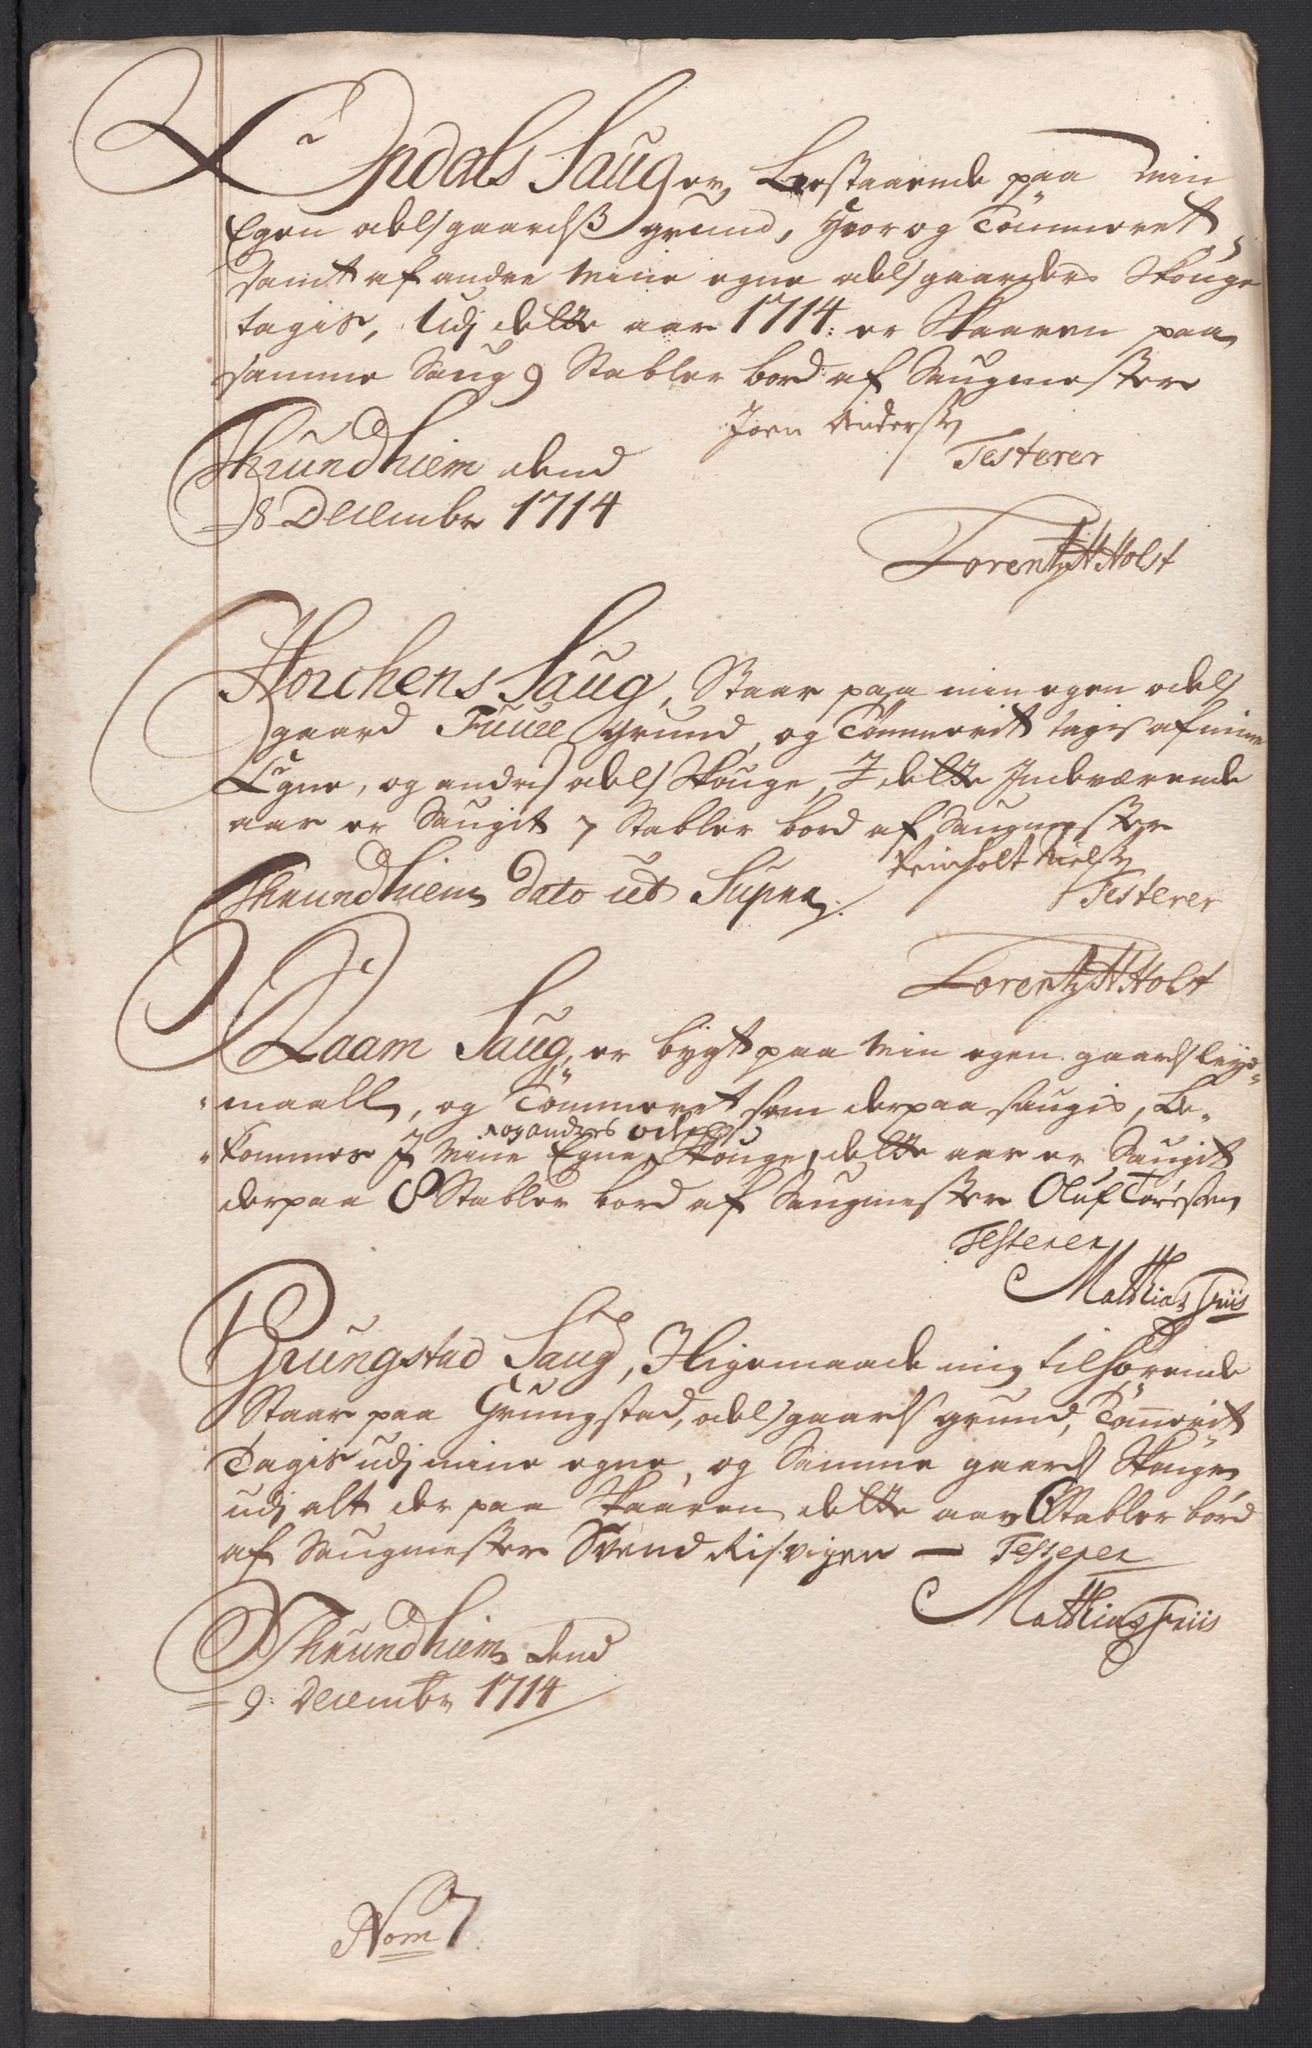 Opdals Saug er, Bestaaende paa min
Egen odelsgaardss grund, hvor og Tømmeret
samt af andre mine egne odelsgaarders Skouge
tagis, Udj dette aar 1714: er Skaaren paa
samme Saug 9 Stabler bord af Saugmester
Joen Anderss:
Thrundhiem dend
Testerer
18 Decembr 1714
Lorentz H Holst
Horchens Saug, Staar paa min egen odels
gaard grund, og Tømmerit tagis af mine
Egne, og andris odels Skouge, I dette Indeværende
aar er Saugit 7 Stabler bord af Saugmester
Reinholt Nielss:
Thrundhiem dato ut Supra
Testerer
Lorentz H Holst
Raam Saug, er bygt paa min egen gaards leye-
maall, og Tømmeret som derpaa saugis, Be-
og andres odels
kommes I mine Egne Skouge, dette aar er Saugit
derpaa 8 Stabler bord af Saugmester Oluf Toresen
Testerer
Matthias Friis
Grungstad Saug, I ligemaade mig tilhørende
Staar paa Grungstad, odelsgaards grund, Tømmerit
Tagis udj mine egne, og Samme gaards Skouge
udj alt der paa Skaaren dette aar 6 Stabler bord
af Saugmester Svend Risvigen — Testerer
Matthias Friis
Thrundhiem dend
9: Decembr 1714
Nom 7